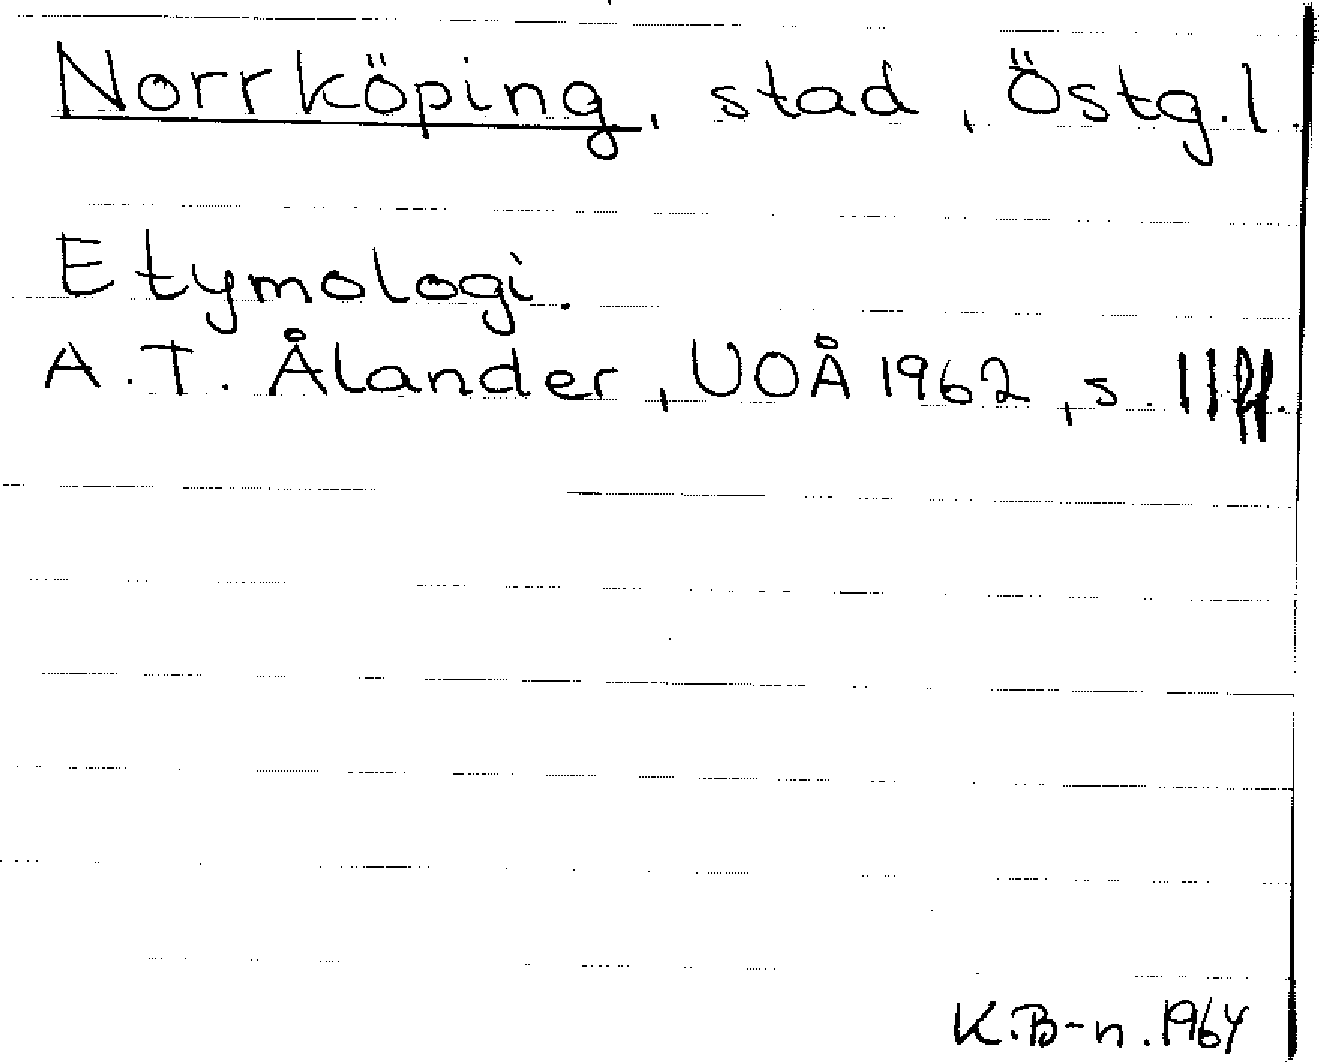 Norrköping, stad, Östg.l.
Etymologi.
A.T. Ålander, UOÅ 1962, s. 11ff.
K.B-n. 1964